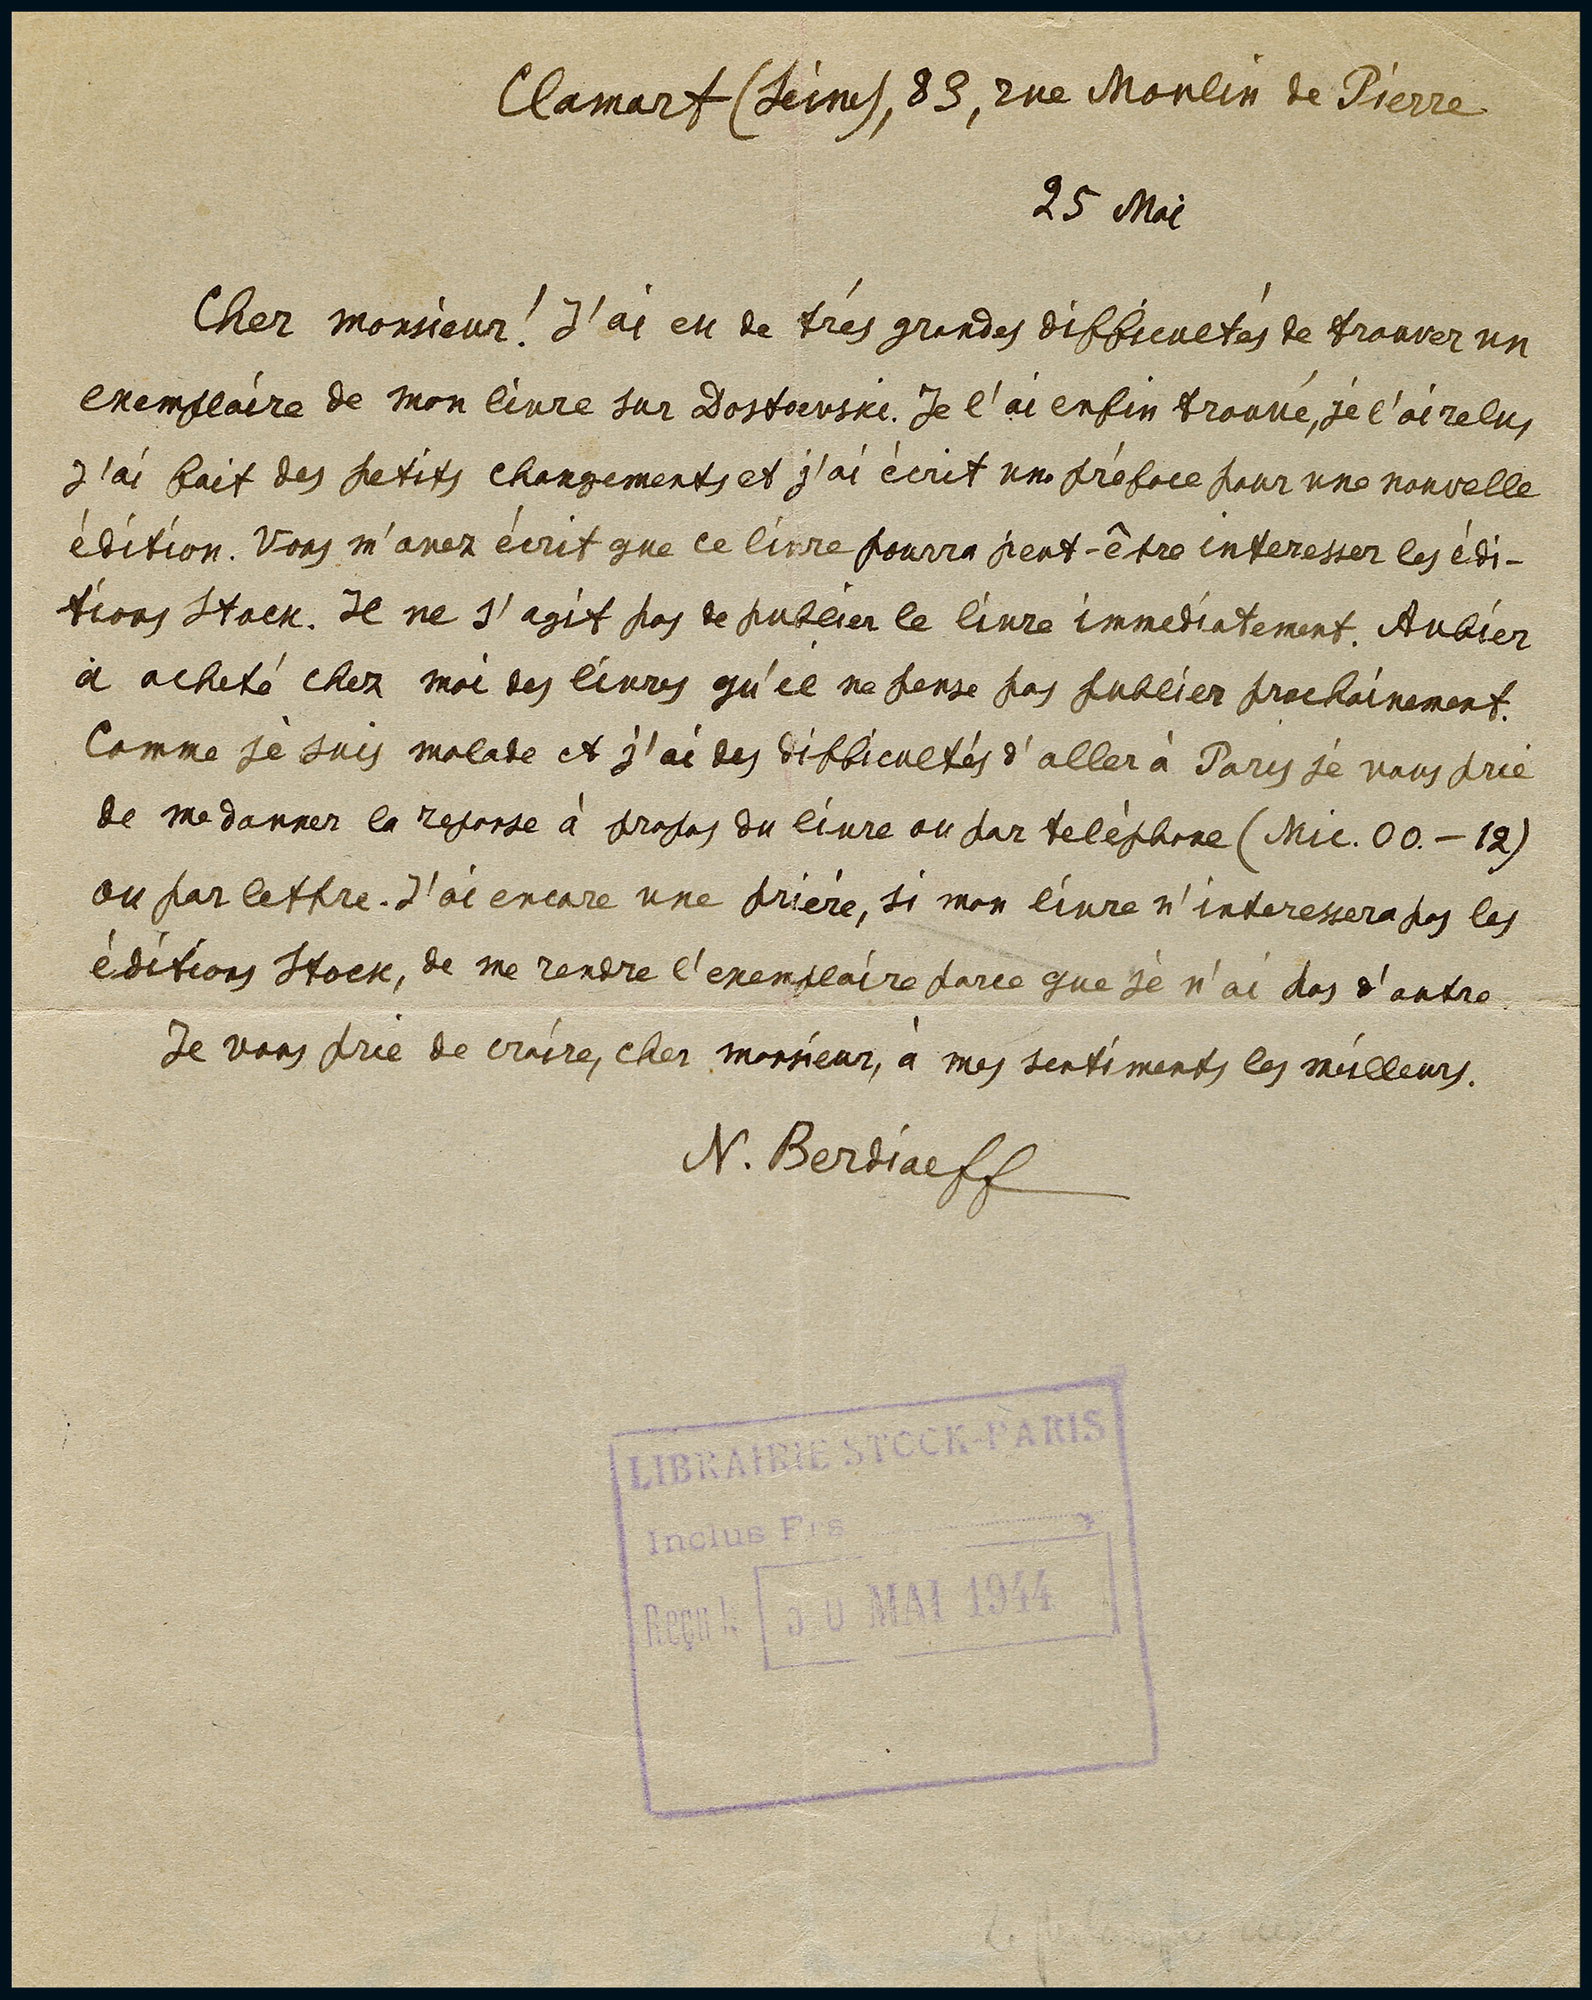 Clamart (Seine), 83, rue Moulin de Pierre
25 Mai
Cher monsieur! J'ai eu de trés grandes difficultés de trouver un
exemplaire de mon livre sur Dostoevski. Je l'ai enfin trouvé, je l'ai relus
J'ai fait des petits changements et j'ai écrit une préface pour une nouvelle
édition. Vous m'avez écrit que ce livre pourra peut-être interesser les édi-
tions Stock. Il ne s'agit pas de publier le livre immediatement. Aubier
a acheté chez moi des livres qu'il ne pense pas publier prochainement.
Comme je suis malade et j'ai des difficultés d'aller à Paris je vous prie
de me donner la reponse à propos du livre ou par teléphone (Mic. 00.-12)
ou par lettre. J'ai encore une priére, si mon livre n'interessera pas les
éditions Stock, de me rendre l'exemplaire parce que je n'ai pas d'autre.
Je vous prie de croire, cher monsieur, à mes sentiments les meilleurs.
N. Berdiaeff
LIBRAIRIE STOCK-PARIS
Inclus Frs
Reçu le 30 MAI 1944